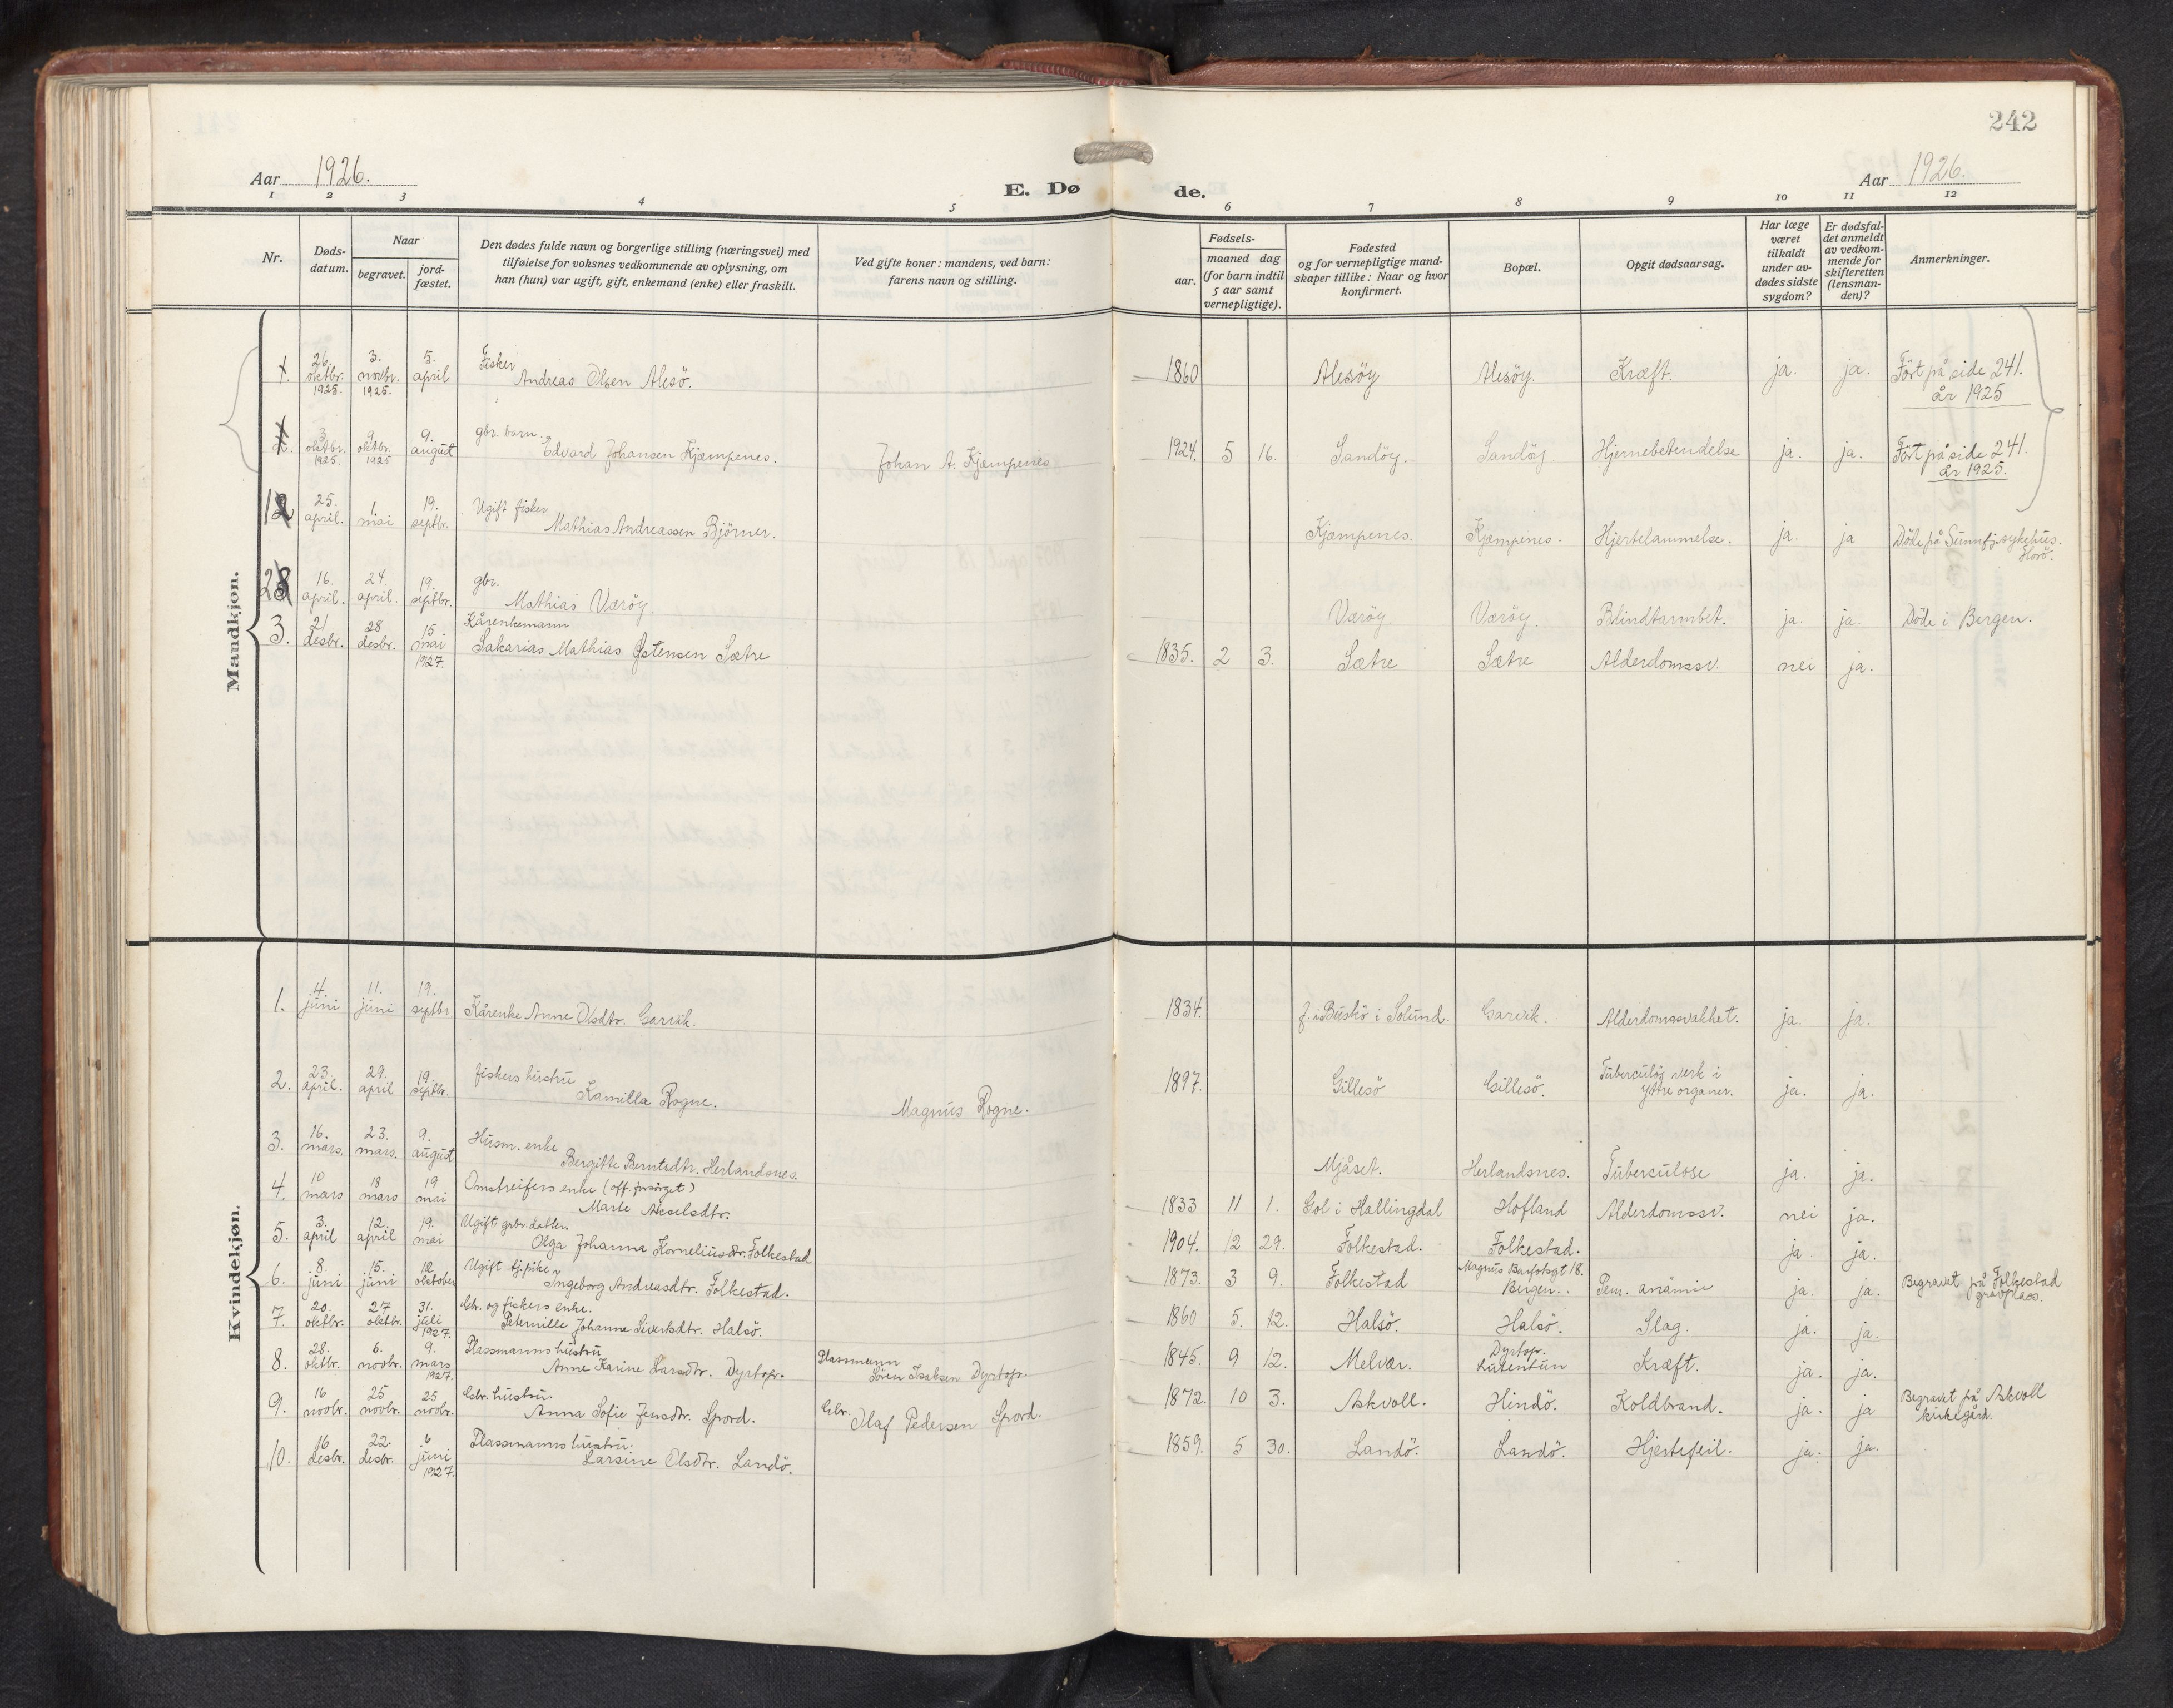 242
Aar 1926.
E. Dø de.
Aar 1926.
1 2 3 4 5 6 7 8 9 10 11 12
Nr.
Døds-
datum.
Naar
begravet.
jord-
fæstet.
Den dødes fulde navn og borgerlige stilling (næringsvei) med
tilføielse for voksnes vedkommende av oplysning, om
han (hun) var ugift, gift, enkemand (enke) eller fraskilt.
Ved gifte koner: mandens, ved barn:
farens navn og stilling.
Fødsels-
aar.
maaned dag
(for barn indtil
5 aar samt
vernepligtige).
Fødested
og for vernepligtige mand-
skaper tillike: Naar og hvor
konfirmert.
Bopæl.
Opgit dødsaarsag.
Har læge
været
tilkaldt
under av-
dødes sidste
sygdom?
Er dødsfal-
det anmeldt
av vedkom-
mende for
skifteretten
(lensman-
den)?
Anmerkninger.
Mandkjøn.
1. 26. oktbr. 1925. 3. novbr. 1925. 5. april Fisker Andreas Olsen Alesö. 1860 Alesöy Alesöy. Kræft. ja. ja. Fört på side 241. år 1925
2. 3. oktbr. 1925. 9. oktbr. 1925 9. august gbr. barn. Edvard Johansen Kjæmpenes. Johan A. Kjæmpenes 1924. 5 16. Sandöy. Sandöy Hjernebetendelse ja. ja. Fört på side 241. år 1925.
1 2 25. april. 1. mai 19. septbr. Ugift fisker Mathias Andreassen Björner. Kjæmpenes. Kjæmpenes. Hjertelammelse. ja. ja Döde på Sunnfj. sykehus. Florö.
2 3 16. april. 24. april. 19. septbr. gbr. Mathias Værøy. Værøy. Værøy. Blindtarmbet. ja. ja. Döde i Bergen.
3. 21 desbr. 28 desbr. 15 mai 1927. Kårenkemann Sakarias Mathias Østensen Sætre 1835. 2 3. Sætre Sætre Alderdomssv. nei ja.
Kvindekjøn.
1. 4. juni 11. juni 19. septbr. Kårenke Anne Olsdtr. Garvik. 1834. f. i Buskö i Solund. Garvik. Alderdomssvakhet. ja. ja.
2. 23. april. 29. april 19. septbr. fiskers hustru Kamilla Rogne. Magnus Rogne. 1897. Gillesö Gillesö. Tuberculös verk i ytre organer. ja. ja.
3. 16. mars. 23. mars. 9. august Husm. enke Bergitte Berntsdtr. Herlandsnes. Mjåset. Herlandsnes. Tuberculose ja. ja.
4. 10 mars 18 mars 19 mai Omstreifers enke (off. forsörget) Marte Akselsdtr. 1833 11 1. Gol i Hallingdal Hofland Alderdomssv. nei ja.
5. 3. april 12. april 19. mai Ugift gbr. datter. Olga Johanna Korneliusdtr. Folkestad 1904. 12 29. Folkestad. Folkestad. ja ja.
6. 8. juni 15. juni 12 oktober Ugift tj.pike Ingeborg Andreasdtr. Folkestad. 1873. 3 9. Folkestad Magnus Barfotsgt 18. Bergen. Pern. anämie ja. ja. Begravet på Folkestad gravplass.
7. 20. oktbr. 27 oktbr. 31. juli 1927. Gbr. og fiskers enke. Peternille Johanne Sivertsdtr. Halsö. 1860 5. 12. Halsö. Halsö. Slag. ja. ja.
8. 28. oktbr. 6. novbr. 9. mars 1927. Plassmanns hustru Anne Karine Larsdtr. Dyrtopr. Plassmann Sören Isaksen Dyrtopr. 1845. 9 12. Melvær. Dyrtopr. Kræft. ja. ja.
9. 16 novbr. 25 novbr. 25 novbr. Gbr. hustru Anna Sofie Jensdtr. Spord. Gbr. Olaf Pedersen Spord. 1872. 10 3. Askvoll. Hindö. Koldbrand. ja. ja Begravet på Askvoll kirkegård.
10. 16 desbr. 22 desbr. 6 juni 1927. Plassmanns hustru: Larsine Olsdtr. Landö. 1859. 5 30. Landö. Landö. Hjertefeil. ja. ja.